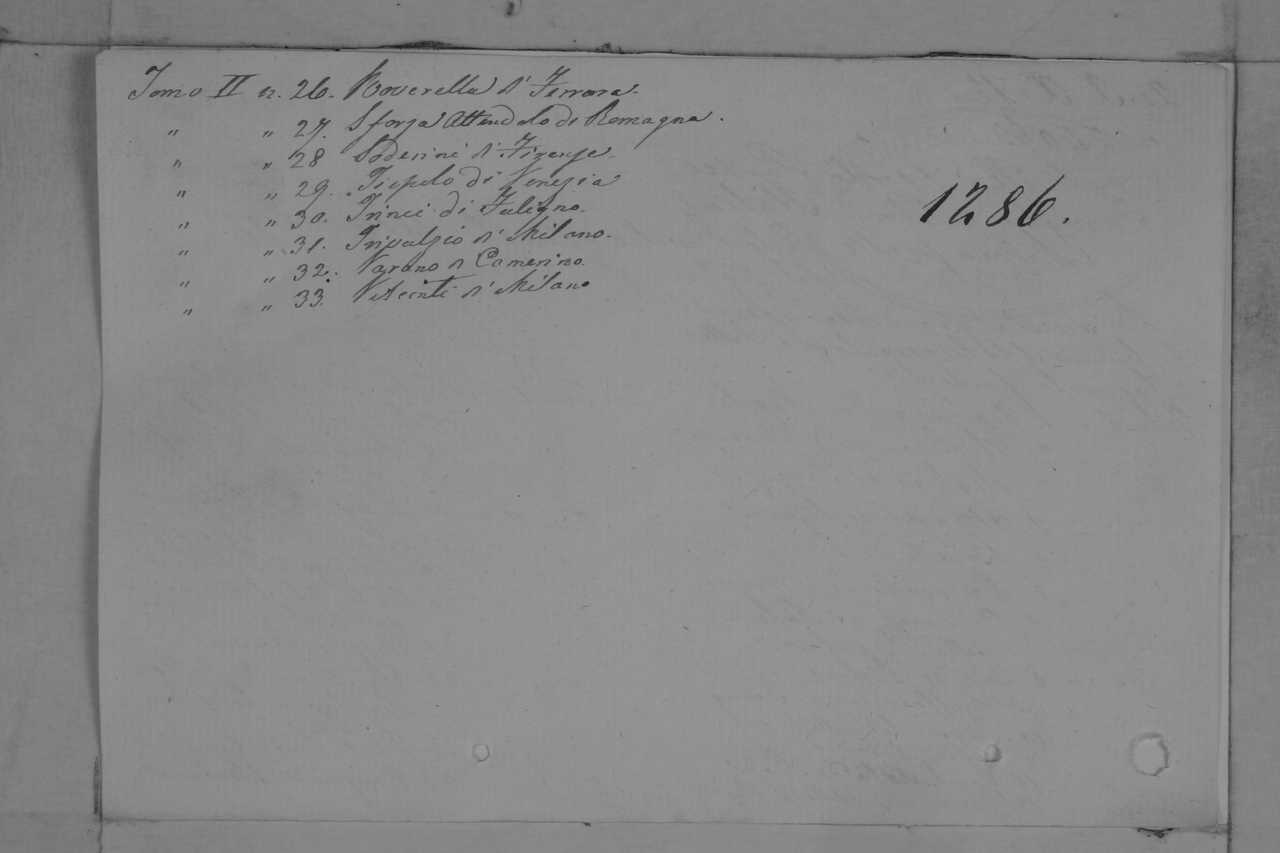 Tomo II n. 26. Roverella d' Ferrara.
" " 27. Sforza Attendolo di Romagna.
" " 28 Soderini d' Firenze.
" " 29. Tiepolo di Venezia
" " 30. Trinci di Fuligno.
" " 31. Trivulzio d' Milano.
" " 32. Varano d Camerino.
" " 33. Visconti d' Milano
1286.